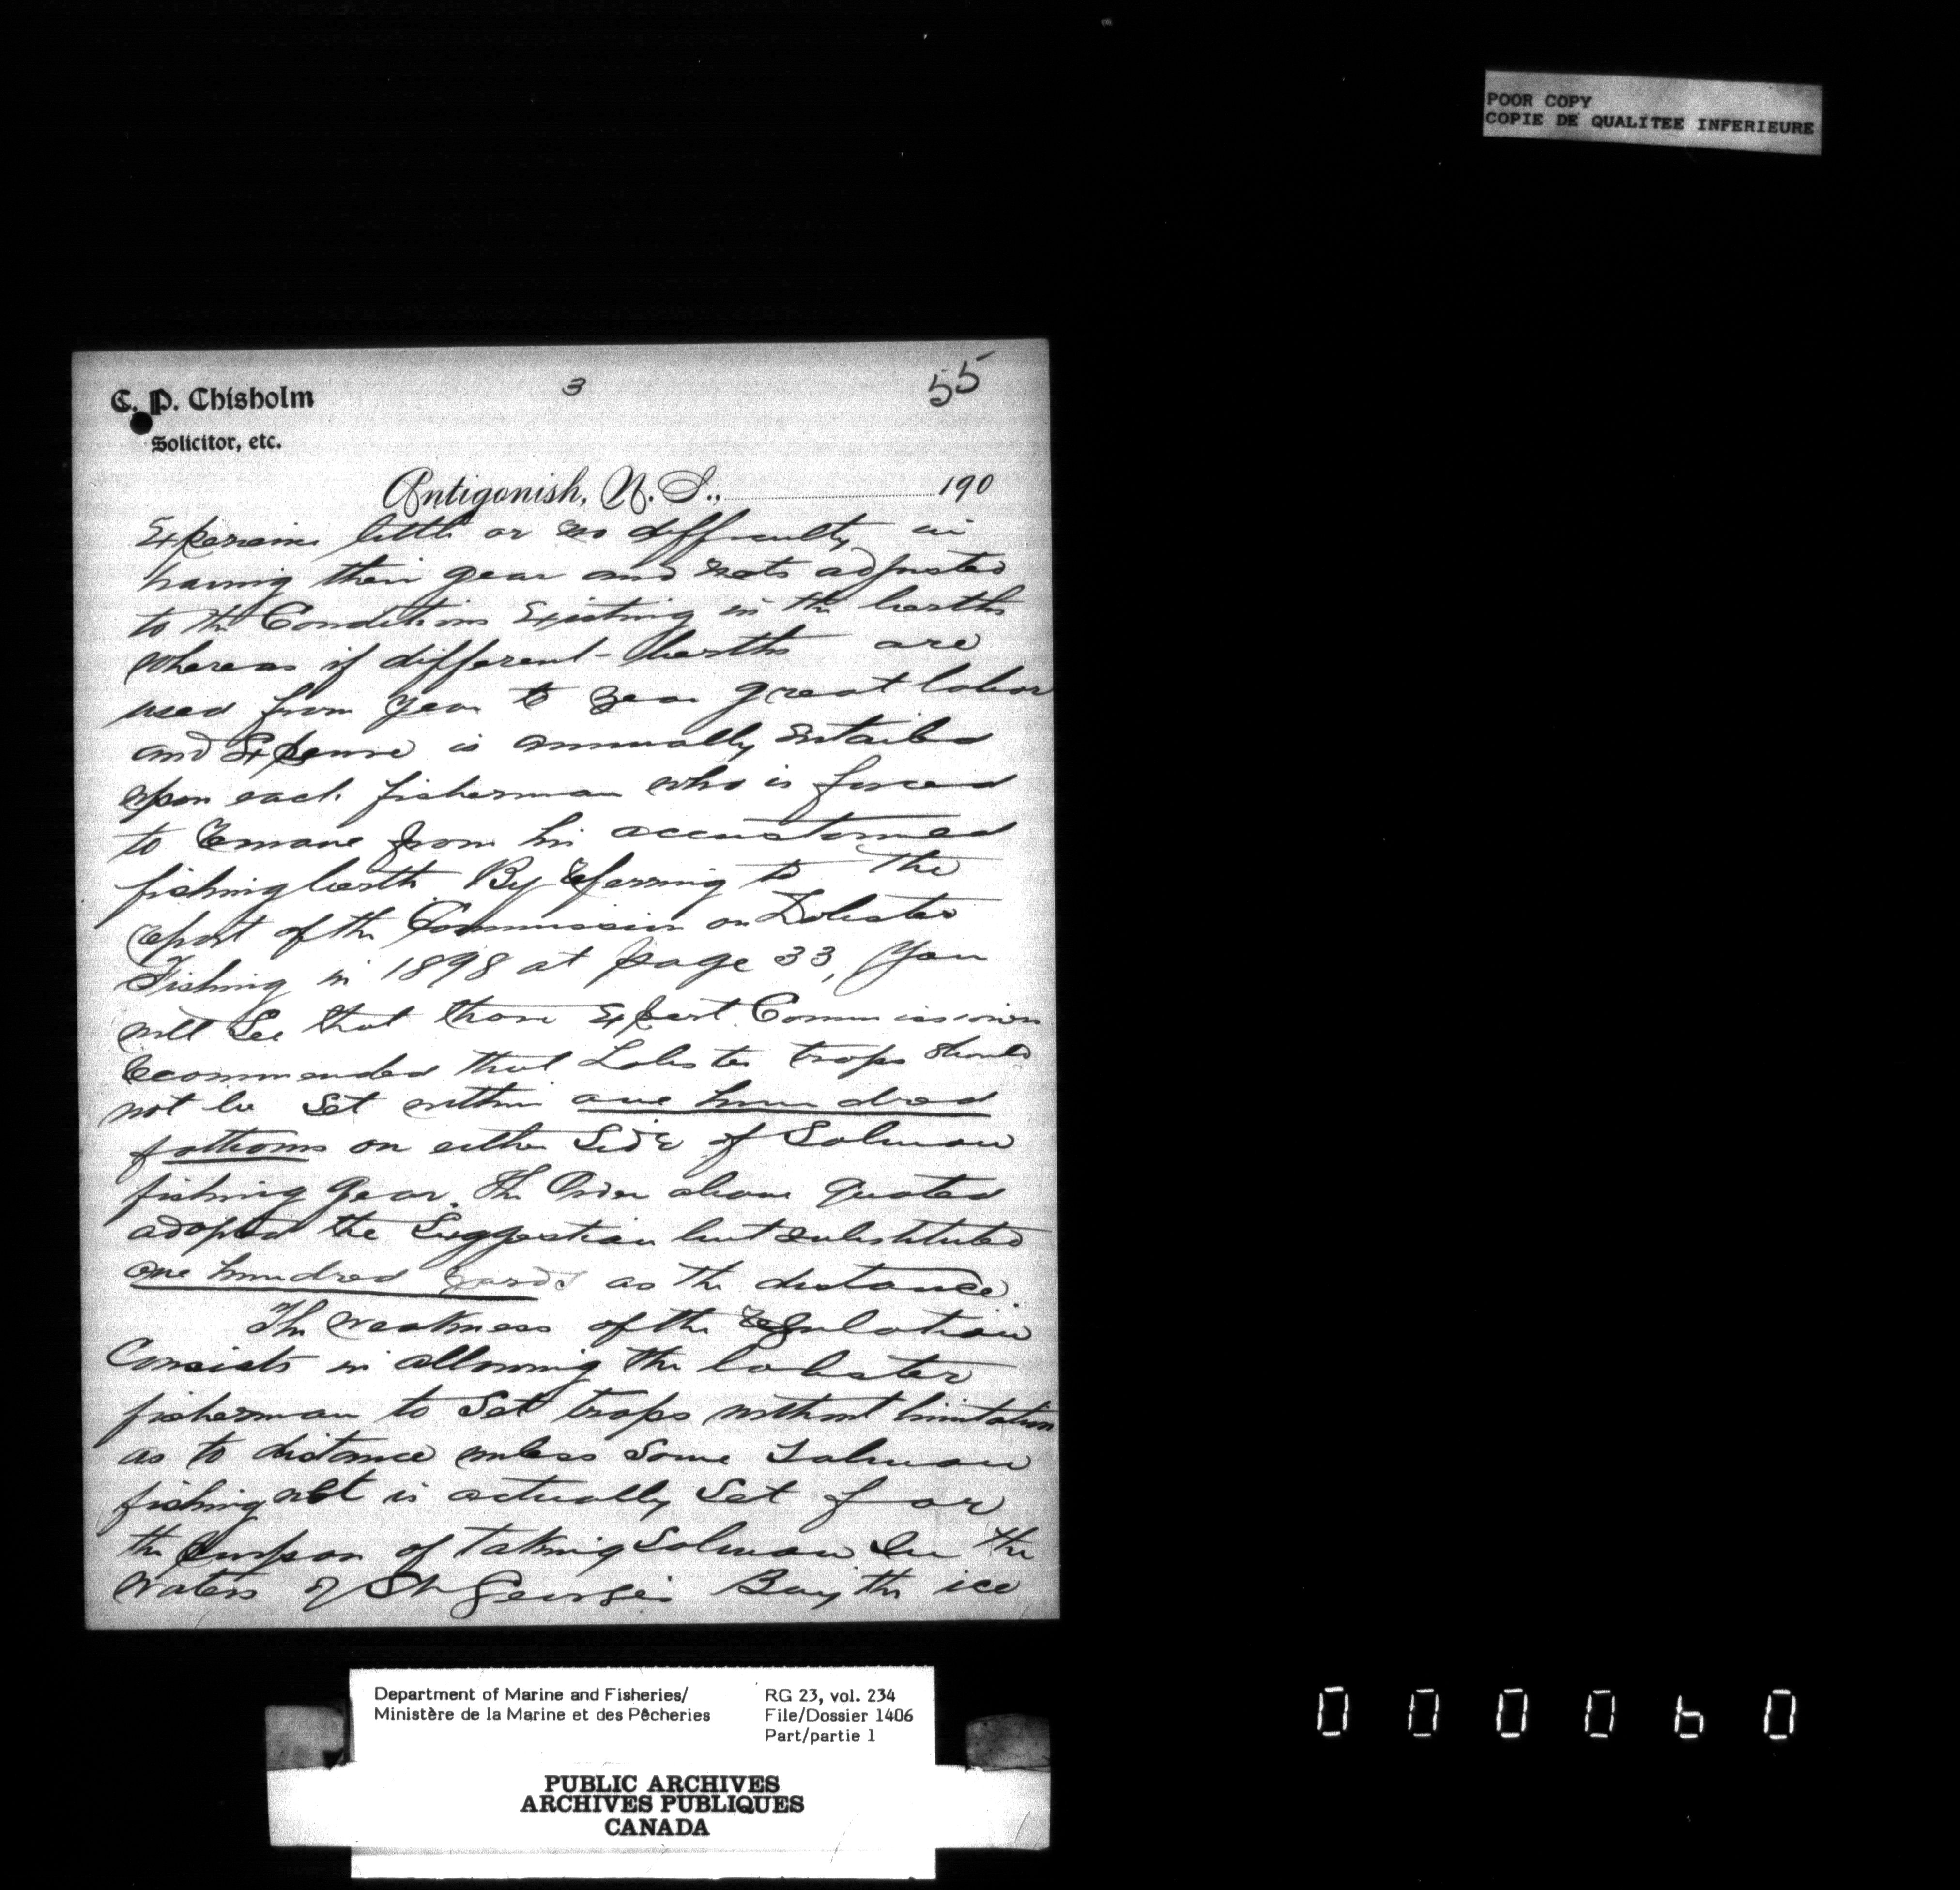 POOR COPY
COPIE DE QUALITEE INFERIEURE
3
55
C. P. Chisholm
Solicitor, etc.
Antigonish, N. S., 190
Experience little or no difficulty in
having their gear and nets adjusted
to the Conditions Existing in the berths
whereas if different berths are
used from year to year great labor
and Expense is annually Entailed
upon each fisherman who is forced
to remove from his accustomed
fishing berth. By referring to the
report of the Commission on Lobster
Fishing in 1898 at page 33, you
will See that those Expert Commissioners
recommended that Lobster traps should
not be Set within one hundred
fathoms on either Side of Salmon
fishing gear. The Order above quoted
adopted the Suggestion but substituted
one hundred yards as the distance.
The weakness of the regulation
Consists in allowing the lobster
fisherman to Set traps without limitation
as to distance unless Some Salmon
fishing net is actually Set for
the purpose of taking Salmon In the
waters of St Georges Bay the ice
Department of Marine and Fisheries/
Ministère de la Marine et des Pêcheries
RG 23, vol. 234
File/Dossier 1406
Part/partie 1
PUBLIC ARCHIVES
ARCHIVES PUBLIQUES
CANADA
000060